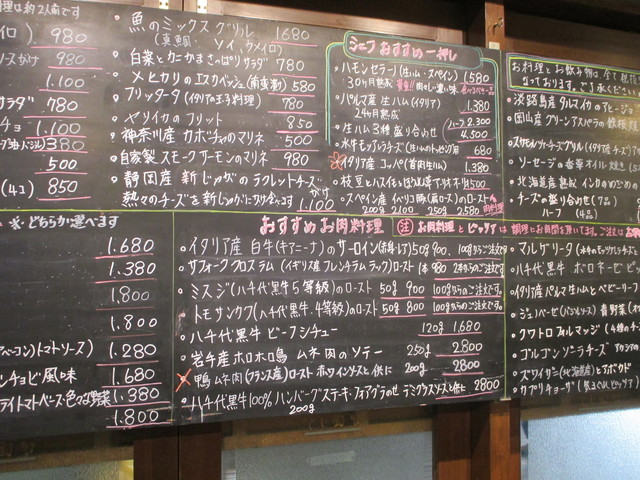 理は約2人前です
980
ソースかけ 980
1.100
サラダ 780
チョ 1.100
380
500
(4コ) 850
魚のミックスグリル 1680
(真鯛、ソイ、ウメイロ)
白菜とたかまさのさっぱりサラダ 780
メヒカリのエスカベッシュ(南蛮漬) 580
フリッタータ (イタリアの玉子料理) 780
ヤリイカのフリット 850
神奈川産 カボチャのマリネ 500
自家製 スモークサーモンのマリネ 980
静岡産 新じゃがのラクレットチーズがけ
熱々のチーズを新じゃがにかけます 1.100
シェフおすすめ一押し
ハモンセラーノ (生ハム・スペイン) 1580
30ヶ月熟成
パルマ産 生ハム(イタリア) 1.380
24ヶ月熟成
生ハム3種盛り合わせ ハーフ 2.300
4.500
水牛モッツァレラチーズ(生ハムのトッピング有) 680
イタリア産 コッパ(首肉生ハム) 1.380
500
スペイン産 イベリコ豚(肩ロース)のロースト
200g 2100 250g 2580
お料理とお飲み物は全て税
なっております。ご了承ください
淡路島産 タルスイカのアヒージョ
岡山産 グリーンアスパラの鉄板
ソーセージの香草オイル焼き
北海道産熟成 インカのめざめの
チーズの盛り合せ(7品)
ハーフ (4品)
※どちらか選べます
1.680
1.380
1.800
1.800
ベーコン)トマトソース) 1.280
ンチョビ風味 1.680
ライトマトベース・色々な野菜 1.380
1.800
おすすめお肉料理 注 お肉料理とピッツァは調理にお時間を頂いてます。ご了承
イタリア産 白牛(キアニーナ)のサーロイン 50g 900 100gからご注文
サフォーククロスラム (イギリス産 フレンチラムラック)ロースト 1本 980 2本からご注文
ミスジ(八千代黒牛5等級)のロースト 50g 900 100gからご注文です。
トモサンカク(八千代黒牛4等級)のロースト 50g 800 100gからご注文です。
八千代黒牛 ビーフシチュー 120g 1.680
岩手産ホロホロ鳥 ムネ肉のソテー 250g 2800
鴨ムネ肉(フランス産)ロースト ホワイトソースと供に 200g 2800
八千代黒牛100%ハンバーグステーキ・フォアグラのせ デミグラスソースと供に 2800
200g
マルゲリータ (水牛のモッツァレラチーズと
八千代黒牛 ボロネーゼピ
イタリア産パルマ生ハムとベビーリーフ
ジェノベーゼ (バジルソース) 春野菜
クワトロフォルマッジ (4種の
ゴルゴンゾーラチーズ
ズワイガニ(北海道産)とアボカド
カプリチョーザ